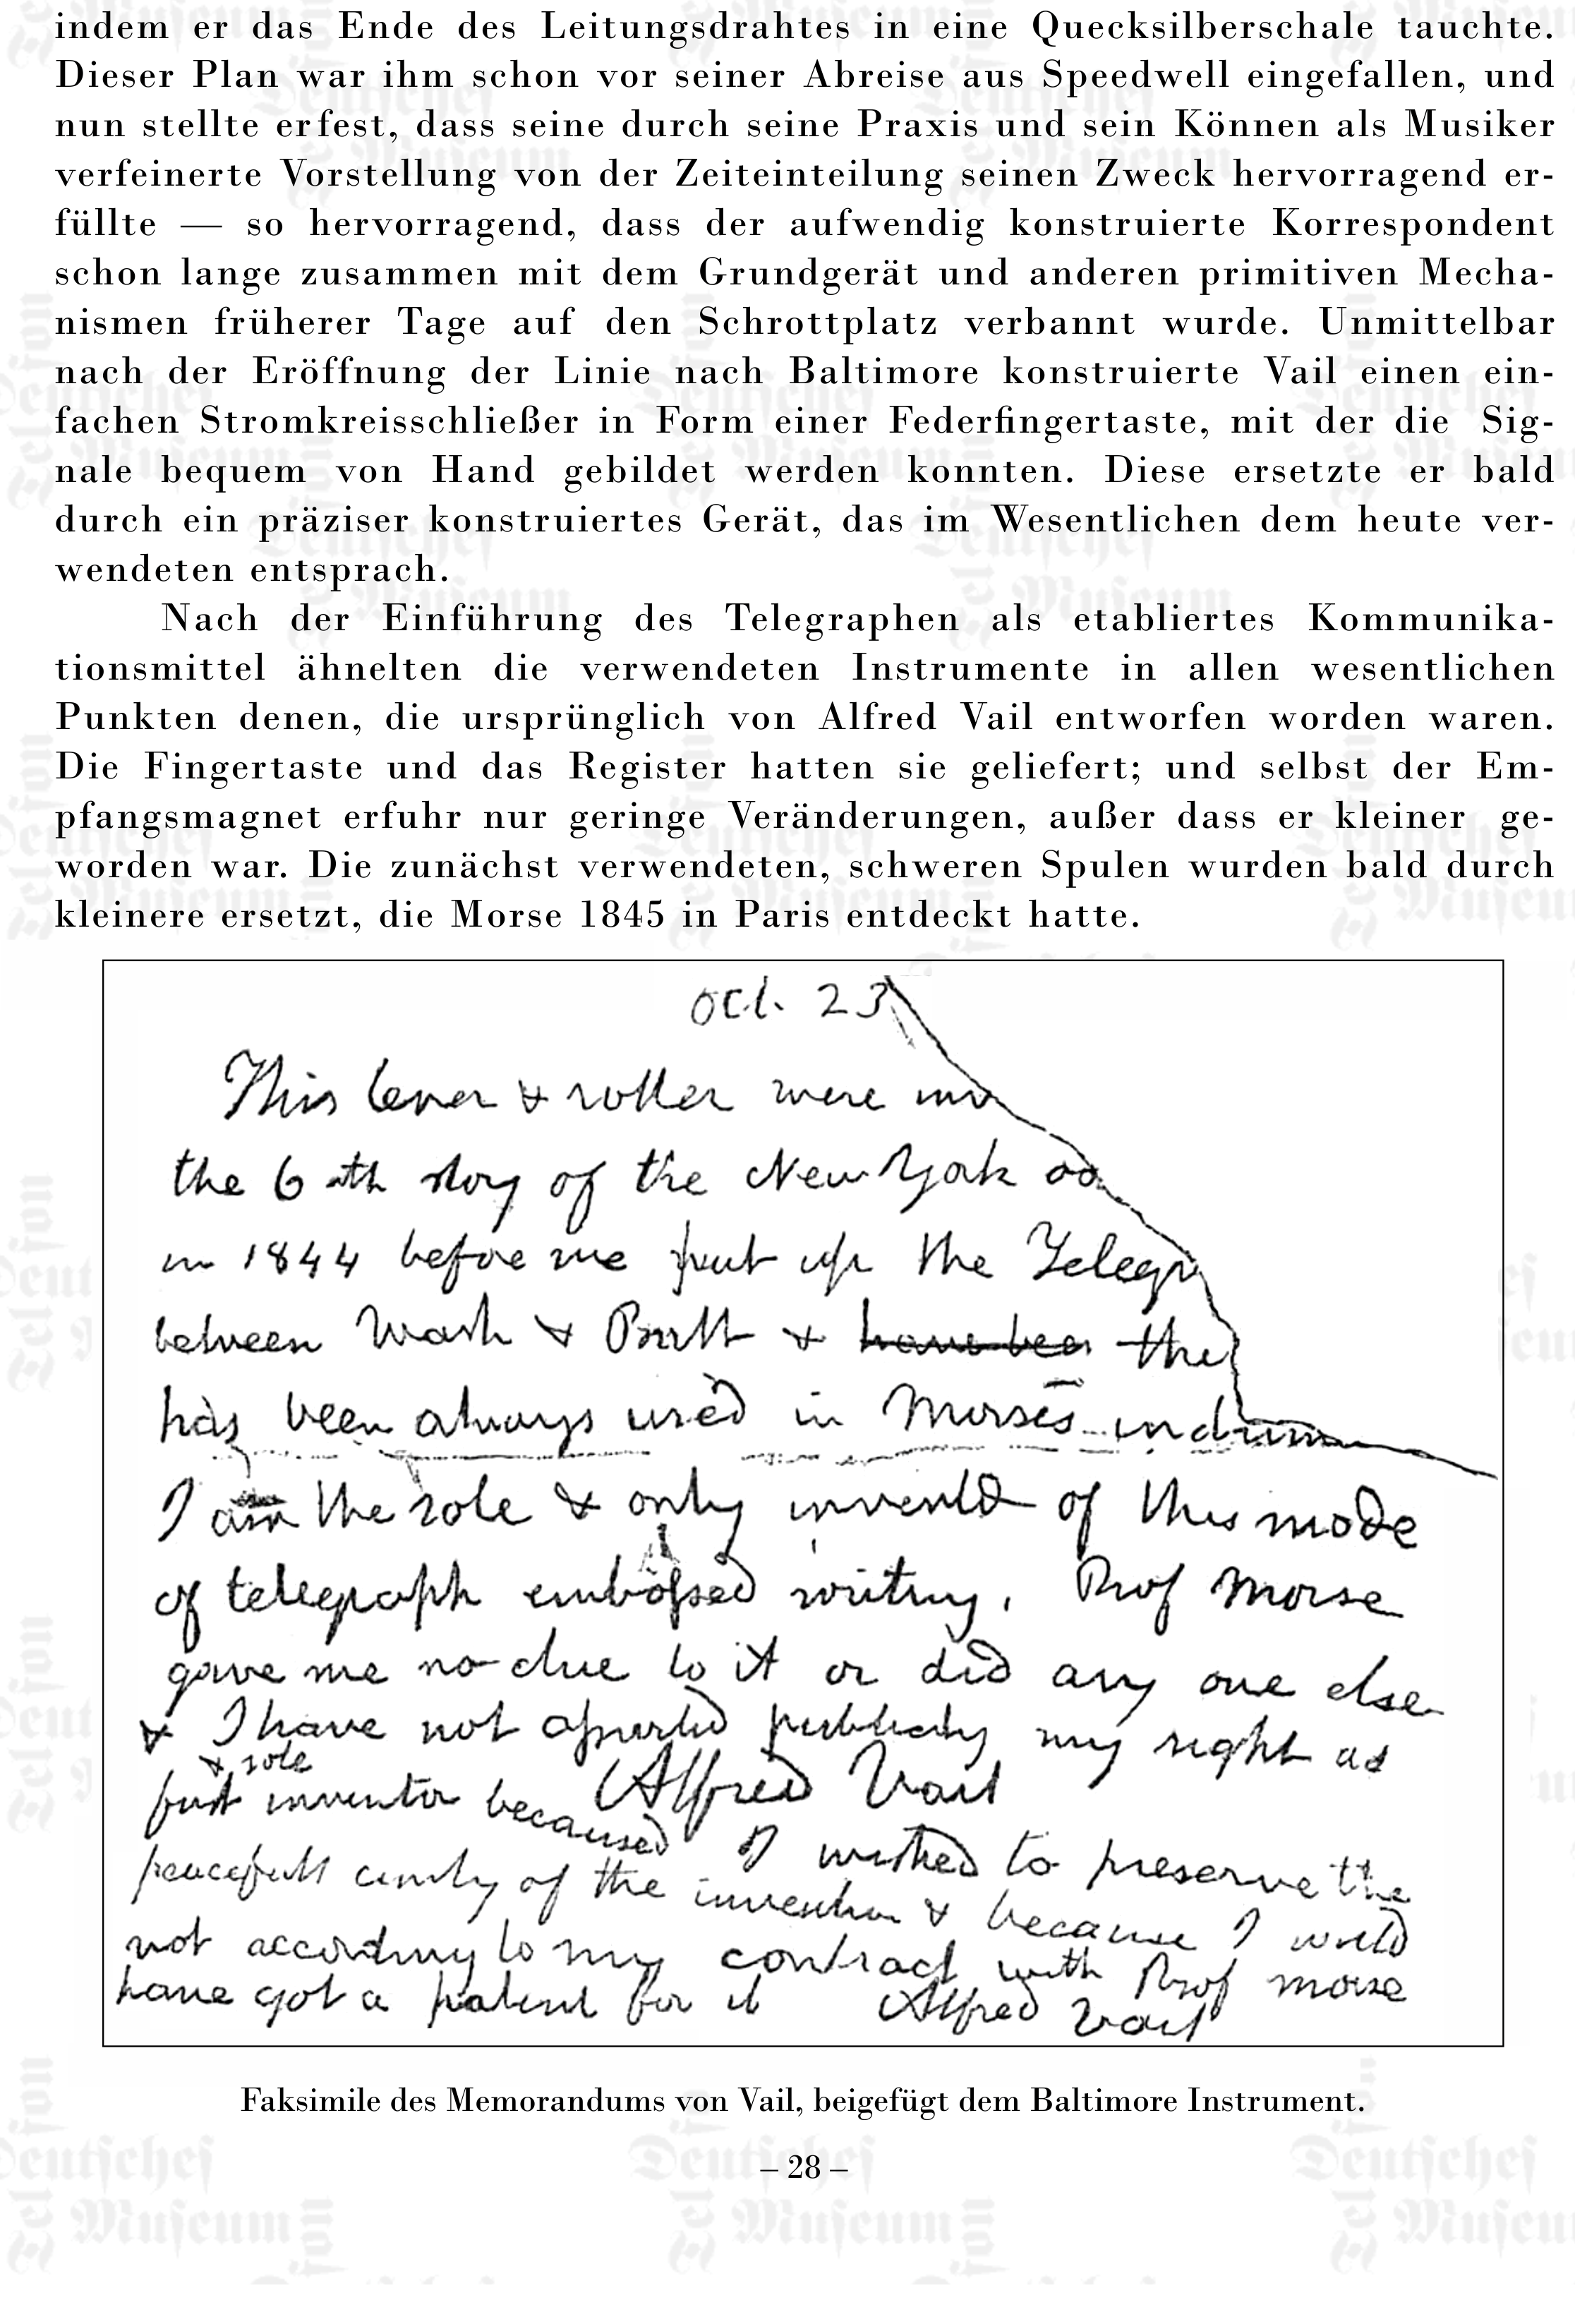 indem er das Ende des Leitungsdrahtes in eine Quecksilberschale tauchte.
Dieser Plan war ihm schon vor seiner Abreise aus Speedwell eingefallen, und
nun stellte erfest, dass seine durch seine Praxis und sein Können als Musiker
verfeinerte Vorstellung von der Zeiteinteilung seinen Zweck hervorragend er-
füllte — so hervorragend, dass der aufwendig konstruierte Korrespondent
schon lange zusammen mit dem Grundgerät und anderen primitiven Mecha-
nismen früherer Tage auf den Schrottplatz verbannt wurde. Unmittelbar
nach der Eröffnung der Linie nach Baltimore konstruierte Vail einen ein-
fachen Stromkreisschließer in Form einer Federfingertaste, mit der die Sig-
nale bequem von Hand gebildet werden konnten. Diese ersetzte er bald
durch ein präziser konstruiertes Gerät, das im Wesentlichen dem heute ver-
wendeten entsprach.
Nach der Einführung des Telegraphen als etabliertes Kommunika-
tionsmittel ähnelten die verwendeten Instrumente in allen wesentlichen
Punkten denen, die ursprünglich von Alfred Vail entworfen worden waren.
Die Fingertaste und das Register hatten sie geliefert; und selbst der Em-
pfangsmagnet erfuhr nur geringe Veränderungen, außer dass er kleiner ge-
worden war. Die zunächst verwendeten, schweren Spulen wurden bald durch
kleinere ersetzt, die Morse 1845 in Paris entdeckt hatte.
Oct. 23
This lever & roller were inv
the 6th story of the New York
in 1844 before we put up the Telegr
between Wash & Balt & have been the
has been always used in Morses instrum
I am the sole & only inventor of this mode
of telegraph embossed writing. Prof Morse
gave me no clue to it or did any one else
& I have not asserted publicly my right as
& sole
first inventor because Alfred Vail
I wished to preserve the
peacefull unity of the invention & because I could
not according to my contract with Prof Morse
have got a patent for it Alfred Vail
Faksimile des Memorandums von Vail, beigefügt dem Baltimore Instrument.
– 28 –
Deutsches
Museum